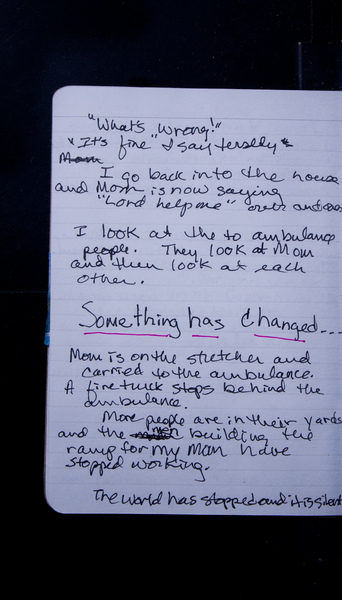 "What's wrong!"
"It's fine" I say tersely
I go back into the house
and Mom is now saying
"Lord help me" over and over
I look at the to ambulance
people. They look at Mom
and then look at each
other.
Something has changed...
Mom is on the stretcher and
carried to the ambulance.
A firetuck stops behind the
ambulance.
More people are in their yards
and the men building the
ramp for my Mom have
stopped working.
The world has stopped and it is silent